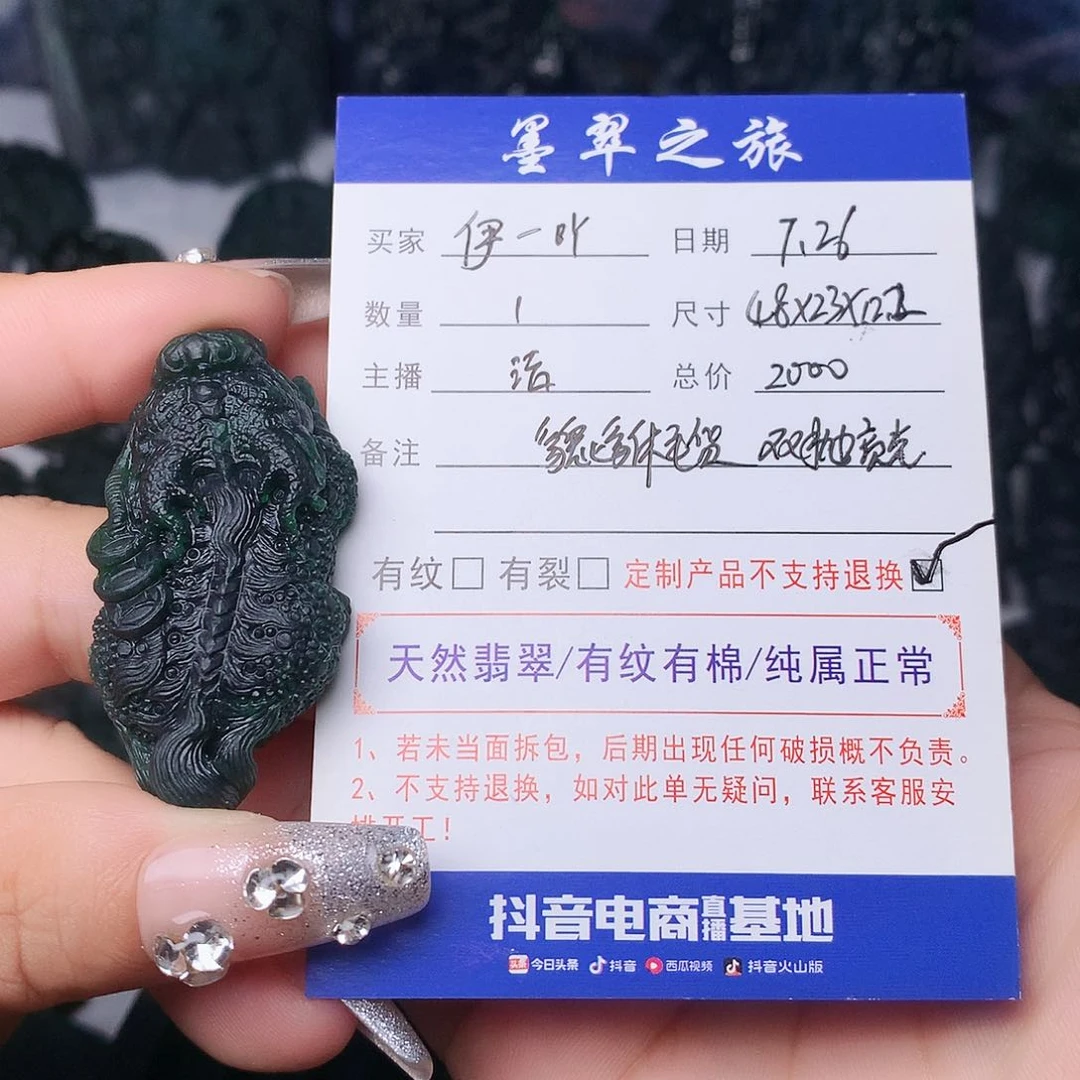 墨翠之旅
买家 伊一叶 日期 7.26
数量 1 尺寸 48X23X12.2
主播 洁 总价 2000
备注 貔貅毛货 双抛亮壳
有纹□ 有裂□ 定制产品不支持退换☑
天然翡翠/有纹有棉/纯属正常
1、若未当面拆包，后期出现任何破损概不负责。
2、不支持退换，如对此单无疑问，联系客服安
排开工！
抖音电商直播基地
头条 今日头条 抖音 西瓜视频 抖音火山版